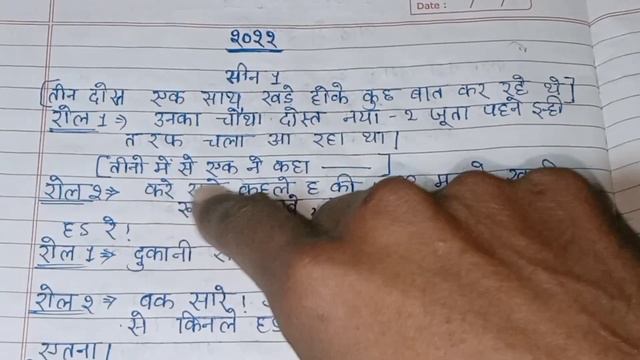 Date :
२०२२
सीन 1
[तीन दोस्त एक साथ खडे होके कुछ बात कर रहे थे]
रोल 1⇒ उनका चौथा दोस्त नया-२ जूता पहने इन्ही
तरफ चला आ रहा था।
[तीनो में से एक ने कहा ——]
रोल २⇒ करे कहले ह की
हड रे!
रोल 1⇒ दुकानी
रोल २⇒ बक सारे!
से किनले हड
एतना।